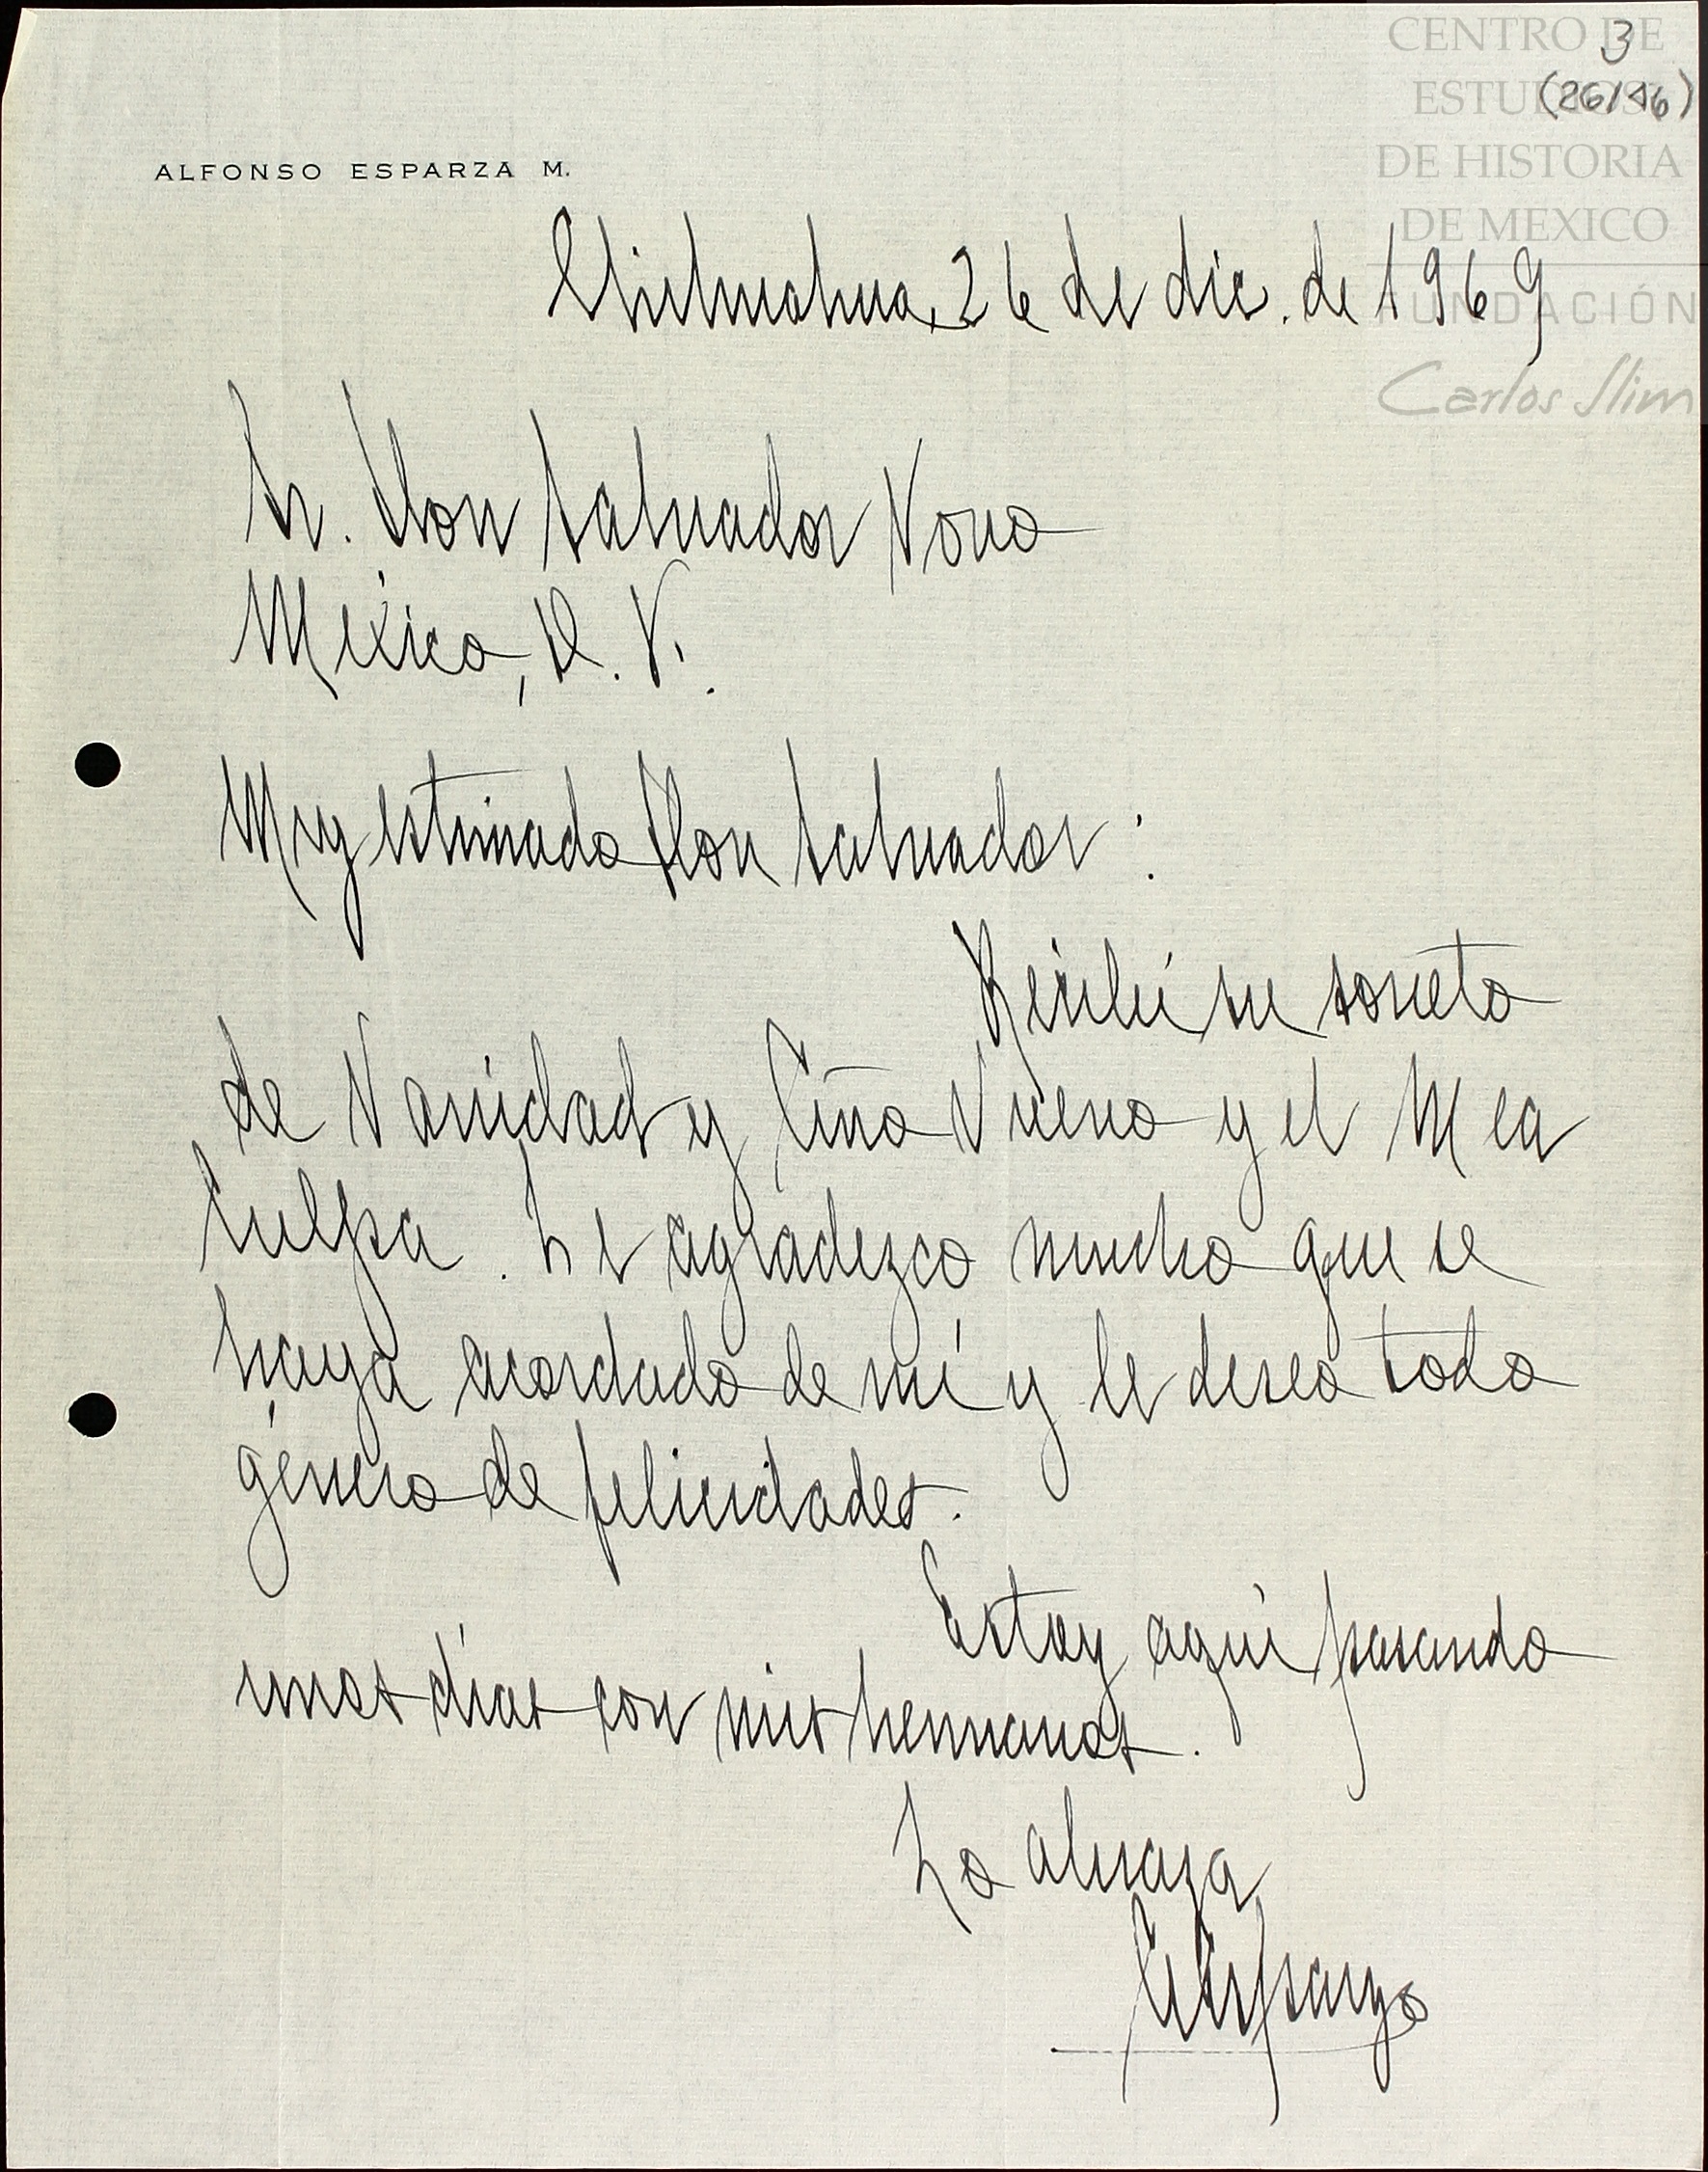 CENTRO DE
ESTUDIOS
DE HISTORIA
DE MEXICO
FUNDACIÓN
Carlos Slim
3
(26/46)
ALFONSO ESPARZA M.
Chihuahua, 26 de dic. de 1969
Sr. Don Salvador Novo
México, D. F.
Muy estimado Don Salvador:
Recibí su soneto
de Navidad y Año Nuevo y el Mea
Culpa. Le agradezco mucho que se
haya acordado de mí y le deseo todo
género de felicidades.
Estoy aquí pasando
unos días con mis hermanos.
Lo abraza
AEsparza